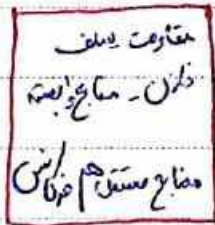 مقاومت - سلف
خازن - منابع وابسته
منابع مستقل هم فرکانس